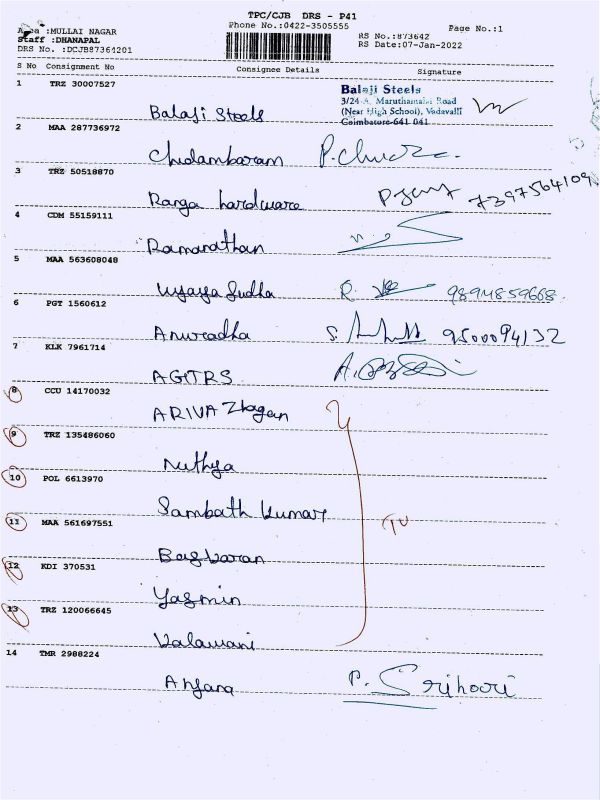 TPC/CJB DRS - P41
Area :MULLAI NAGAR
Phone No.:0422-3505555
Page No.:1
Staff :DHANAPAL
RS No.:873642
DRS No. :DCJB87361201
RS Date:07-Jan-2022
S No Consignment No Consignee Details Signature
1 TRZ 30007527
Balaji Steels
3/24-A, Maruthamalai Road
(Near High School), Vadavalli
Coimbatore-641 041
Balaji Steels
2 MAA 287736972
Chidambaram
3 TRZ 50518870
Ranga hardware 7397564109
4 CDM 55159111
Ramanathan
5 MAA 563608048
Vijaya Sudha 9894859668
6 PGT 1560612
Anuradha 9500094132
7 KLK 7961714
AGITRS
8 CCU 14170032
ARIVAZhagan
9 TRZ 135486060
Nithya
10 POL 6613970
Sambath Kumar
11 MAA 561697551
Baskaran
12 KDI 370531
Yasmin
13 TRZ 120066645
Kalawani
14 TMR 2988224
Anjana P. Srihari